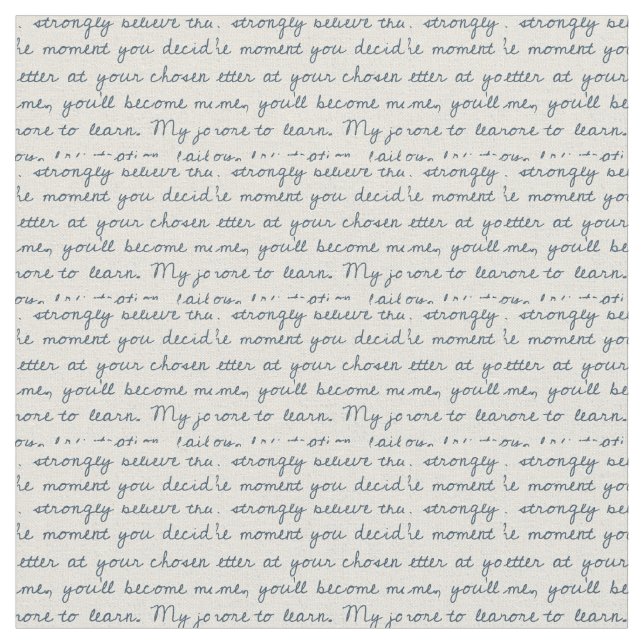 . strongly believe tha. strongly believe tha. strongly . strongly bel
he moment you decid he moment you decid he moment he moment you
etter at your chosen etter at your chosen etter at yo etter at your
me, you'll become mu me, you'll become mu me, you'll me, you'll be
ore to learn. My jo ore to learn. My jo ore to lear ore to learn.
. strongly believe tha. strongly believe tha. strongly . strongly bel
he moment you decid he moment you decid he moment he moment you
etter at your chosen etter at your chosen etter at yo etter at your
me, you'll become mu me, you'll become mu me, you'll me, you'll be
ore to learn. My jo ore to learn. My jo ore to lear ore to learn.
. strongly believe tha. strongly believe tha. strongly . strongly bel
he moment you decid he moment you decid he moment he moment you
etter at your chosen etter at your chosen etter at yo etter at your
me, you'll become mu me, you'll become mu me, you'll me, you'll be
ore to learn. My jo ore to learn. My jo ore to lear ore to learn.
. strongly believe tha. strongly believe tha. strongly . strongly bel
he moment you decid he moment you decid he moment he moment you
. strongly believe tha. strongly believe tha. strongly . strongly bel
he moment you decid he moment you decid he moment he moment you
etter at your chosen etter at your chosen etter at yo etter at your
me, you'll become mu me, you'll become mu me, you'll me, you'll be
ore to learn. My jo ore to learn. My jo ore to lear ore to learn.